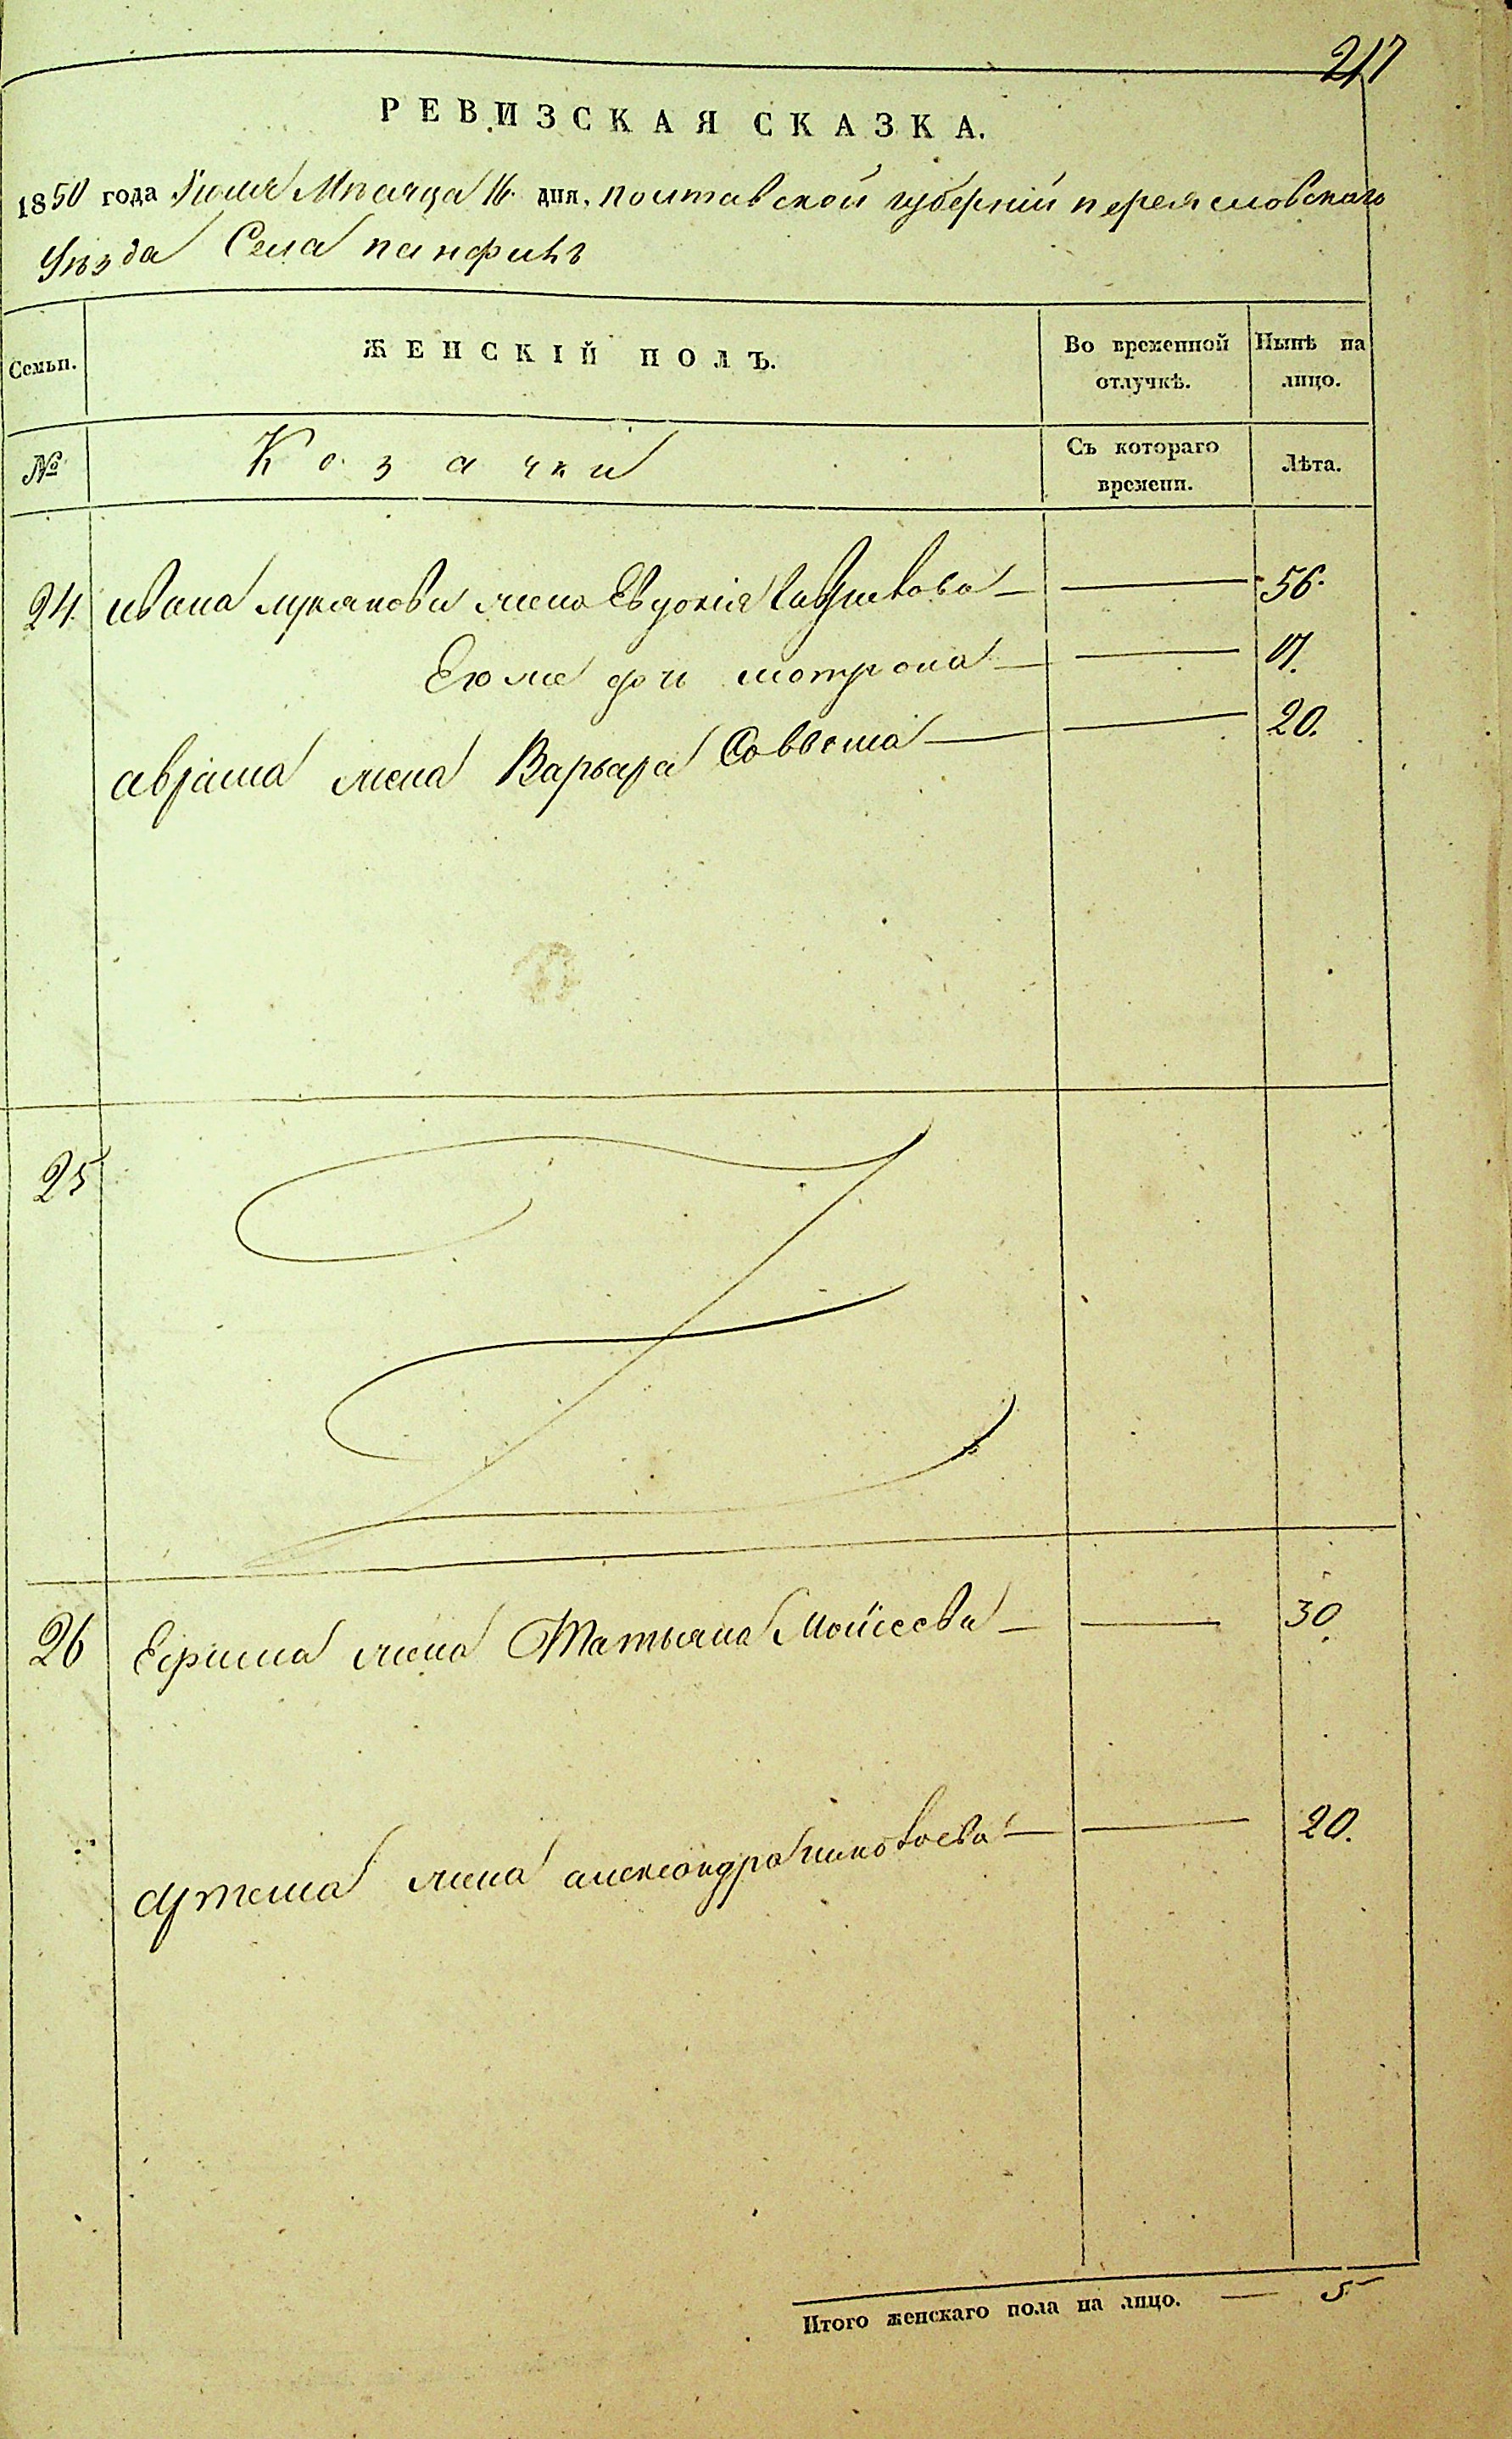 217
РЕВИЗСКАЯ СКАЗКА.
1850 года Іюля Мѣсяца 16 дня, полтавской губерніи переяславскаго
Уѣзда Села панфилъ
Семьи.
ЖЕНСКІЙ ПОЛЪ.
Во временной отлучкѣ.
Нынѣ на лицо.
№
Козачки
Съ котораго времени.
Лѣта.
24 ивана жена Евдокія — 56.
Его же дочь мотрона — 17.
аврама жена Варвара — 20.
25
26 Ефима жена Татьяна Мойсеева — 30
артема жена александра — 20.
Итого женскаго пола на лицо. — 5